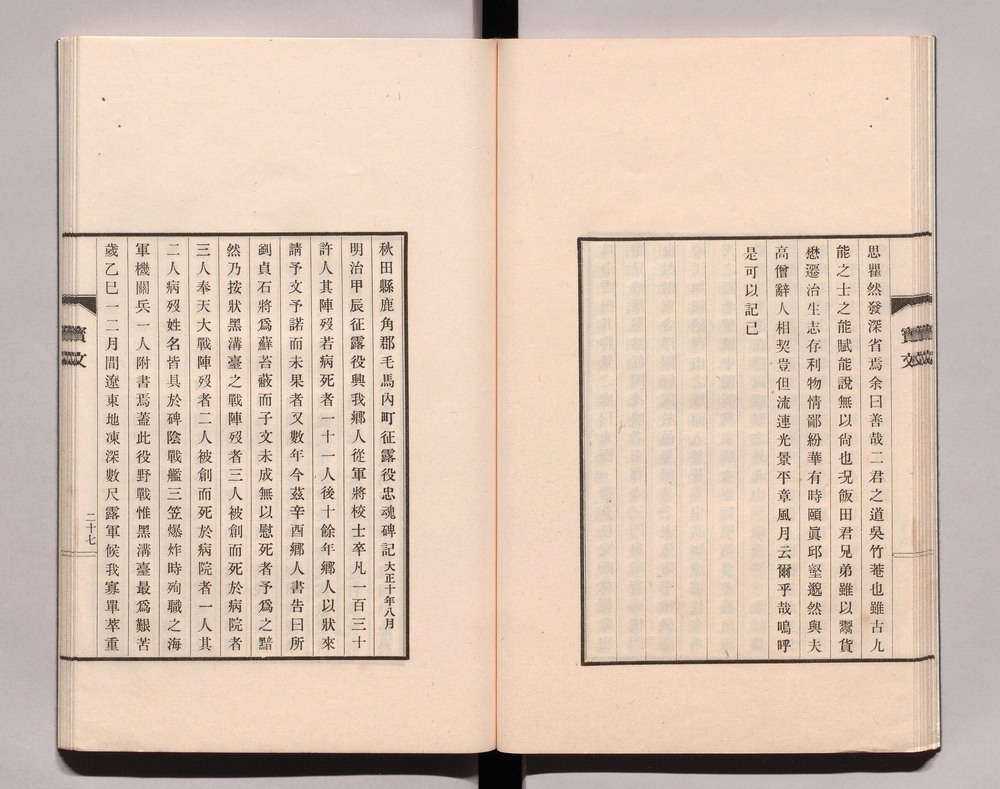 思瞿然發深省焉余曰善哉二君之道吳竹菴也雖古九
能之士之能賦能說無以尙也况飯田君兄弟雖以鬻貨
懋遷治生志存利物情鄙紛華有時頤眞邱壑邈然與夫
高僧辭人相契豈但流連光景平章風月云爾乎哉嗚呼
是可以記已
秋田縣鹿角郡毛馬內町征露役忠魂碑記大正十年八月
明治甲辰征露役興我鄕人從軍將校士卒凡一百三十
許人其陣歿若病死者一十一人後十餘年鄕人以狀來
請予文予諾而未果者又數年今茲辛酉鄕人書告曰所
劖貞石將爲蘇苔蔽而子文未成無以慰死者予爲之黯
然乃按狀黑溝臺之戰陣歿者三人被創而死於病院者
三人奉天大戰陣歿者二人被創而死於病院者一人其
二人病歿姓名皆具於碑陰戰艦三笠爆炸時殉職之海
軍機關兵一人附書焉蓋此役野戰惟黑溝臺最爲艱苦
歲乙巳一二月間遼東地凍深數尺露軍候我寡單萃重
二十七